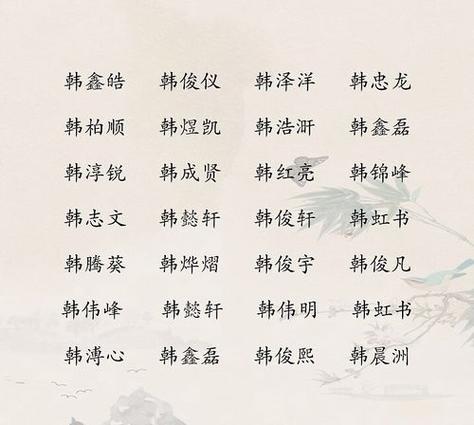 韩鑫皓 韩俊仪 韩泽洋 韩忠龙
韩柏顺 韩煜凯 韩浩浒 韩鑫磊
韩淳锐 韩成贤 韩红亮 韩锦峰
韩志文 韩懿轩 韩俊轩 韩虹书
韩腾葵 韩烨熠 韩俊宇 韩俊凡
韩伟峰 韩懿轩 韩伟明 韩虹书
韩溥心 韩鑫磊 韩俊熙 韩晨洲